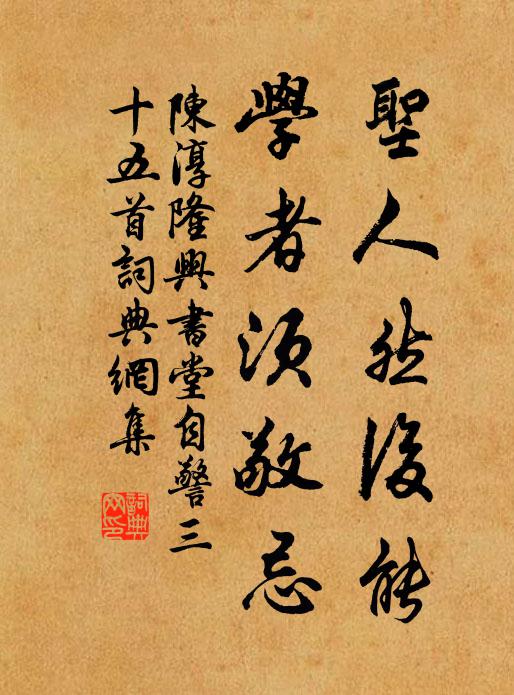 聖人然後能
學者須敬忌
陳淳隆興書堂自警三
十五首詞典網集
詞典網印